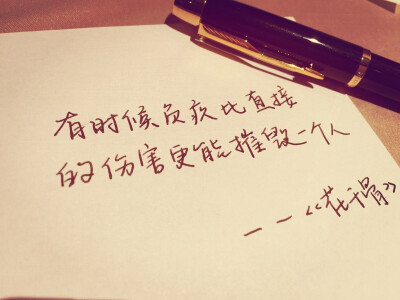 有时候负疚比直接
的伤害更能摧毁一个人
——《花千骨》